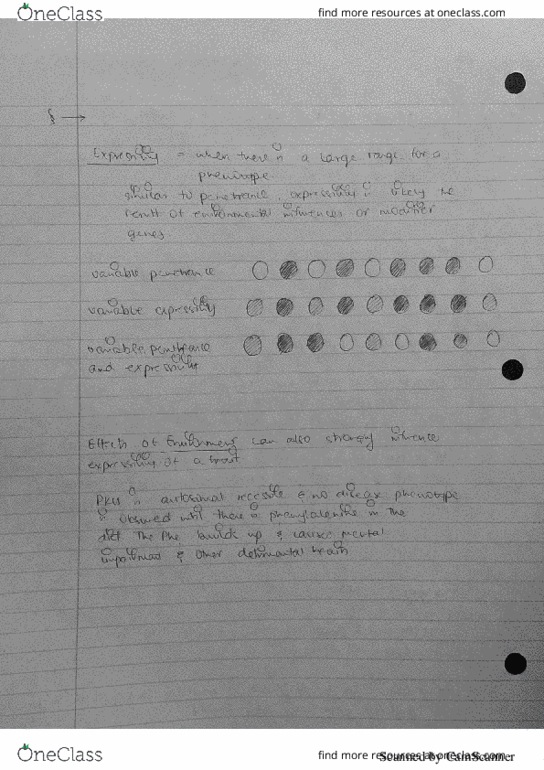 OneClass find more resources at oneclass.com
Expressivity - when there is a large range for a
phenotype
similar to penetrance, expressivity is likely the
result of environmental influences or modifier
genes
variable penetrance
variable expressivity
variable penetrance
and expressivity
Effects of Environment can also strongly influence
expressivity of a trait
PKU is autosomal recessive & no disease phenotype
is observed until there is phenylalanine in the
diet The Phe builds up & causes mental
impairment & other detrimental traits
OneClass find more resources at oneclass.com
Scanned by CamScanner